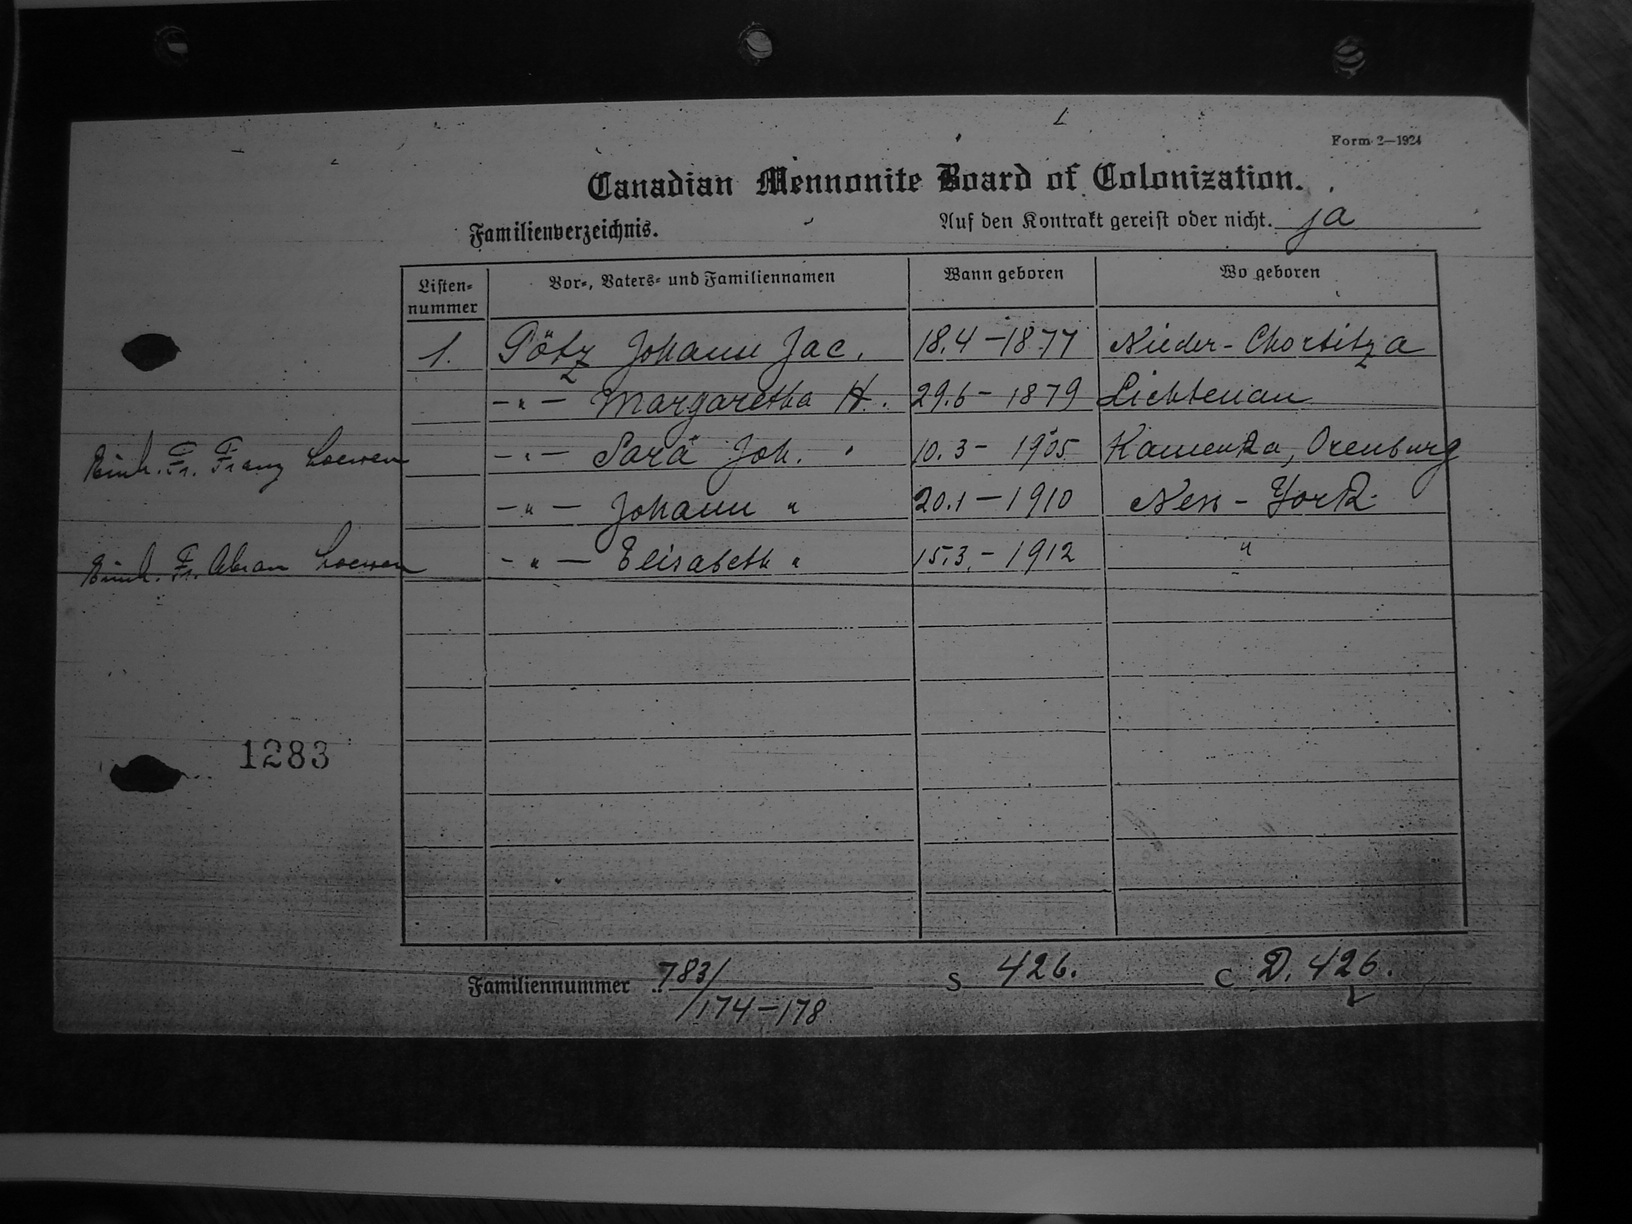 Form 2—1924
Canadian Mennonite Board of Colonization.
Familienverzeichnis. Auf den Kontrakt gereist oder nicht. ja
Listen-nummer Vor-, Vaters- und Familiennamen Wann geboren Wo geboren
1. Pötz Johann Jac. 18.4-1877 Nieder-Chortitza
-"- Margaretha H. 29.6-1879 Lichtenau
Fr. Franz Loewen -"- Sara Joh. 10.3-1905 Kamenka, Orenburg
-"- Johann " 20.1-1910 New-York
Fr. Abram Loewen -"- Elisabeth " 15.3.-1912 "
1283
Familiennummer 783/ S 426. C D. 426.
/174-178